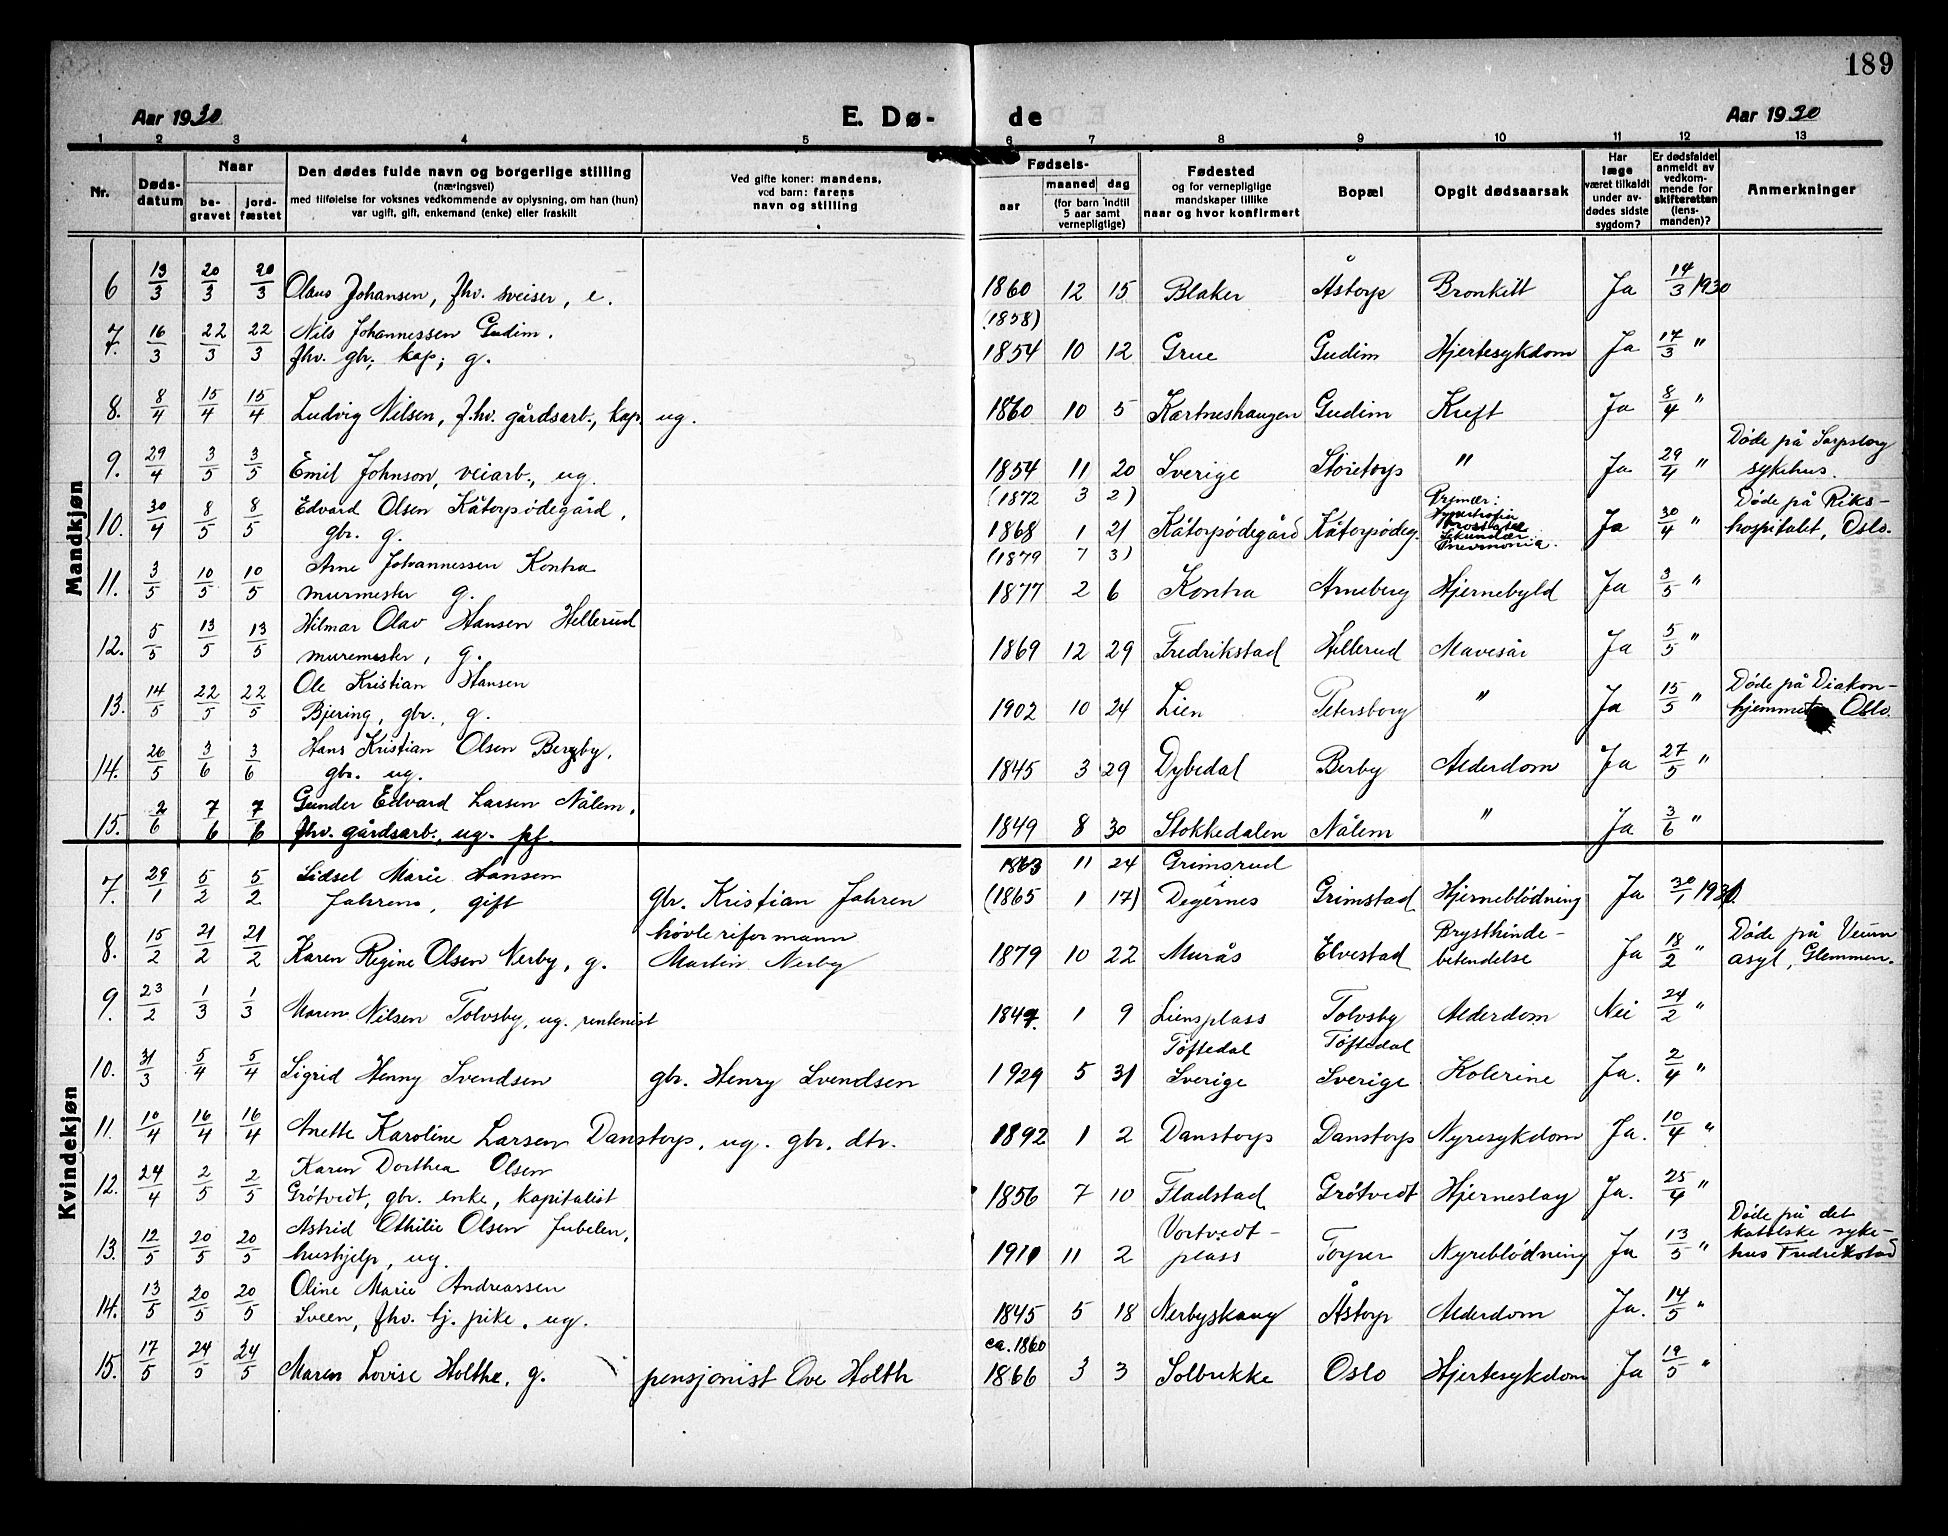 189
Aar 1930 E. Dø- de Aar 1930
1 2 3 4 5 6 7 8 9 10 11 12 13
Nr. Døds-datum Naar begravet jordfæstet Den dødes fulde navn og borgerlige stilling (næringsvei) med tilføielse for voksnes vedkommende av oplysning, om han (hun) var ugift, gift, enkemand (enke) eller fraskilt Ved gifte koner: mandens, ved barn: farens navn og stilling Fødsels- aar maaned dag (for barn indtil 5 aar samt vernepligtige) Fødested og for vernepligtige mandskaper tillike naar og hvor konfirmert Bopæl Opgit dødsaarsak Har læge været tilkaldt under avdødes sidste sygdom? Er dødsfaldet anmeldt av vedkommende for skifteretten (lensmanden)? Anmerkninger
Mandkjøn
6 13/3 20/3 20/3 Olaus Johansen, fhv. sveiser, e. 1860 12 15 Blaker Åstorp Bronkitt Ja 14/3 1930
7. 16/3 22/3 22/3 Nils Johannessen Gudim. (1858)
fhv. gbr, kap; g. 1854 10 12 Grue Gudim Hjertesykdom Ja 17/3 "
8. 8/4 15/4 15/4 Ludvig Nilsen, f.hv. gårdsarb., kap. ug. 1860 10 5 Kartneshaugen Gudim Kreft Ja 8/4 "
9. 29/4 3/5 3/5 Emil Johnson, veiarb., ug. 1854 11 20 Sverige Storetorp " Ja. 29/4 " Døde på Sarpsborg
sykehus.
10. 30/4 8/5 8/5 Edvard Olsen Kåtorpødegård, (1872 3 2) Primær: Døde på Riks-
gbr. g. 1868 1 21 Kåtorpødegård Kåtorpødeg. Hypertrofia Prostatae Sekundær: Pnevmonia. Ja 30/4 " hospitalet, Oslo.
11. 3/5 10/5 10/5 Arne Johannessen Kontra (1879 7 3)
murmester g. 1877 2 6 Kontra Arneberg Hjernebyld Ja 3/5 "
12. 5/5 13/5 13/5 Hilmar Olav Hansen Hellerud
muremester, g. 1869 12 29 Fredrikstad Hellerud Mavesår Ja 5/5 "
13. 14/5 22/5 22/5 Ole Kristian Hansen Døde på Diakon-
Bjering, gbr., g. 1902 10 24 Lien Petersborg " Ja 15/5 " hjemmet, Oslo.
14. 26/5 3/6 3/6 Hans Kristian Olsen Bergby,
gbr. ug. 1845 3 29 Dybedal Berby Alderdom Ja 27/5 "
15. 2/6 7/6 7/6 Gunder Edvard Larsen Nålem,
fhv. gårdsarb., ug. pf. 1849 8 30 Stokkedalen Nålem " Ja 3/6 "
Kvindekjøn
7. 29/1 5/2 5/2 Sidsel Marie Hansen 1863 11 24 Grimsrud i
Jahren, gift gbr. Kristian Jahren (1865 1 17) Degernes Grimstad Hjerneblødning Ja 30/1 1930
8. 15/2 21/2 21/2 Karen Regine Olsen Nerby, g. høvleriformann Martin Nerby 1879 10 22 Murås Elvestad Brysthinde-betendelse Ja 18/2 " Døde på Veum
asyl, Glemmen.
9. 23/2 1/3 1/3 Maren Nilsen Tolvsby, ug. rentenist 1847. 1 9 Liensplass Tolvsby Alderdom Nei 24/2 "
10. 31/3 5/4 5/4 Sigrid Henny Svendsen gbr. Henry Svendsen 1929 5 31 Töftedal Sverige Töftedal Sverige Kolerine Ja. 2/4 "
11. 10/4 16/4 16/4 Anette Karoline Larsen Danstorp, ug. gbr. dtr. 1892 1 2 Danstorp Danstorp Nyresykdom Ja. 10/4 "
12. 24/4 2/5 2/5 Karen Dorthea Olsen
Grötvedt, gbr. enke, kapitalist 1856 7 10 Fladstad Grötvedt Hjerneslag Ja. 25/4 "
13. 12/5 20/5 20/5 Astrid Othilie Olsen Jubelen, Vortvedt- Døde på det
hushjelp, ug. 1910 11 2 plass Torper Nyreblödning Ja 13/5 " katolske syke-
hus Fredrikstad
14. 13/5 20/5 20/5 Oline Marie Andreassen
Sveen, fhv. tj. pike, ug. 1845 5 18 Nerbyskaug Åstorp Alderdom Ja. 14/5 "
15. 17/5 24/5 24/5 ca. 1860
Maren Lovise Holthe, g. pensjonist Ove Holth 1866 3 3 Solbrekke Oslo Hjertesykdom Ja 19/5 "